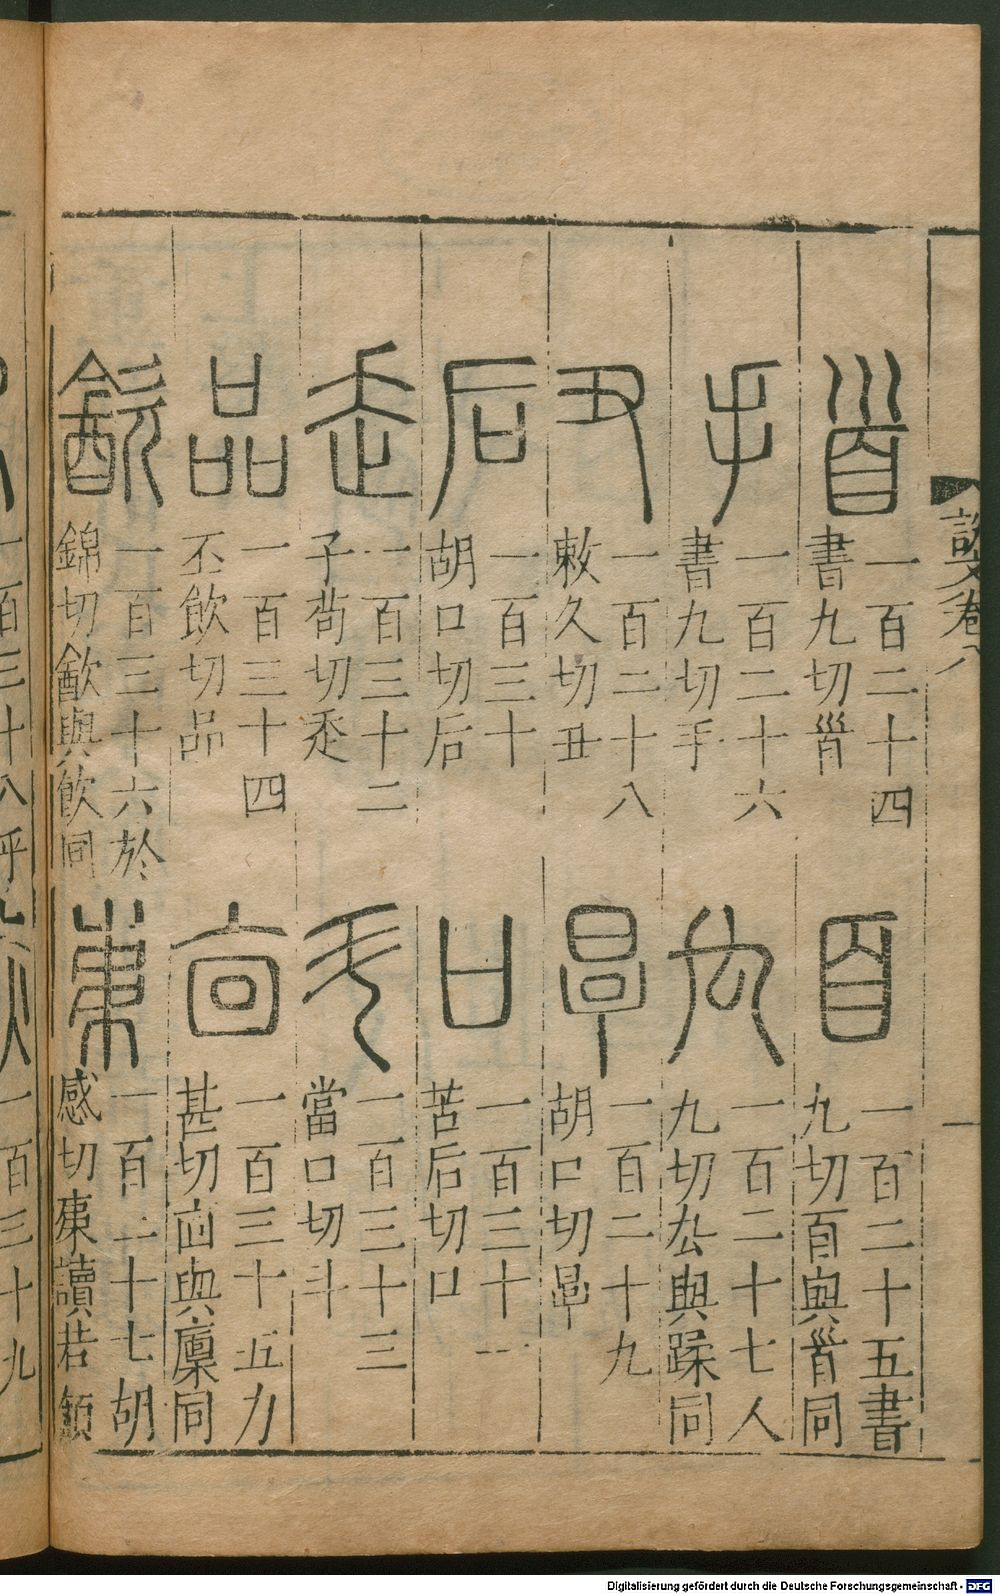 說文卷八
𩠐 一百二十四書九切𩠐
𦣻 一百二十五書九切𦣻與𩠐同
手 一百二十六書九切手
厹 一百二十七人九切厹與蹂同
丑 一百二十八敕久切丑
㫗 一百二十九胡口切㫗
后 一百三十胡口切后
口 一百三十一苦后切口
走 一百三十二子苟切走
斗 一百三十三當口切斗
品 一百三十四丕飲切品
㐭 一百三十五力甚切㐭與廩同
㱃 一百三十六於錦切㱃與飲同
一百二十七胡感切讀若頷
一百三十八呼
一百三十九
Digitalisierung gefördert durch die Deutsche Forschungsgemeinschaft - DFG